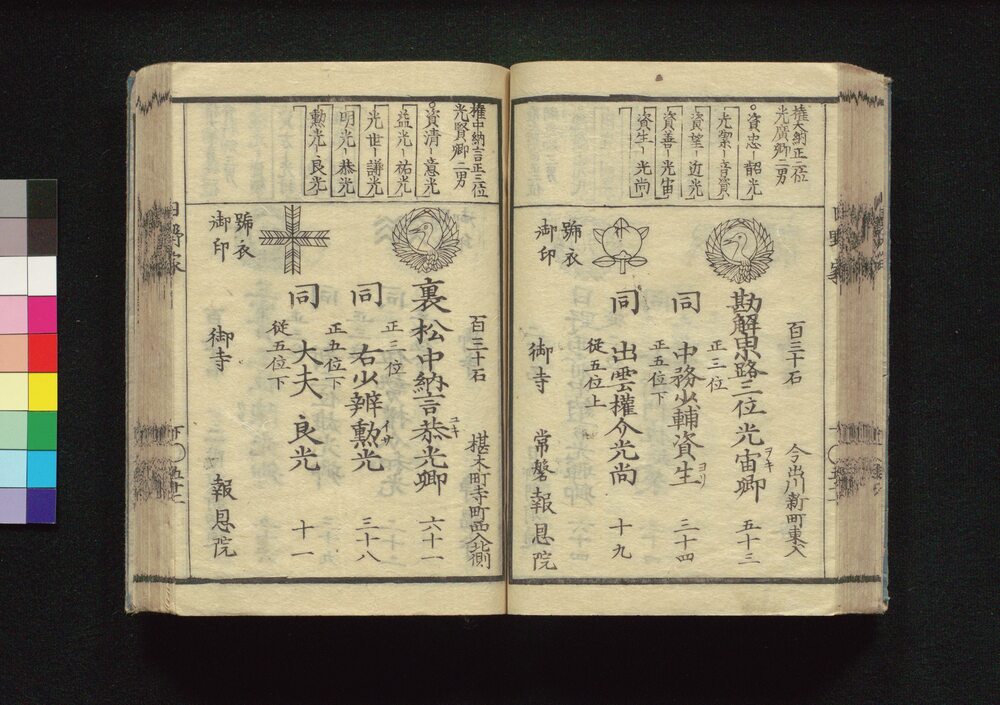 権大納正二位
光廣卿二男
資忠 韶光
光潔 音資
資望 近光
資善 光宙
資生 光尚
百三十石
今出川新町東入
勘解由路三位光宙卿
ヲキ
五十三
正三位
同 中務少輔資生
ヨリ
三十四
正五位下
同 出雲權介光尚
十九
從五位上
號衣
御印
御寺
常磐報恩院
権中納言正三位
光賢卿二男
資清 意光
益光 祐光
光世 謙光
明光 恭光
勲光 良光
百三十石
椹木町寺町西入北側
裏松中納言恭光卿
ユキ
六十一
正三位
同 右少辨勲光
イサ
三十八
正五位下
同 大夫良光
十一
從五位下
號衣
御印
御寺
報恩院